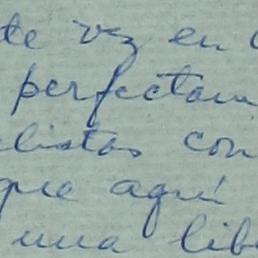 te vez en
perfectam
listas con
que aquí
una lib